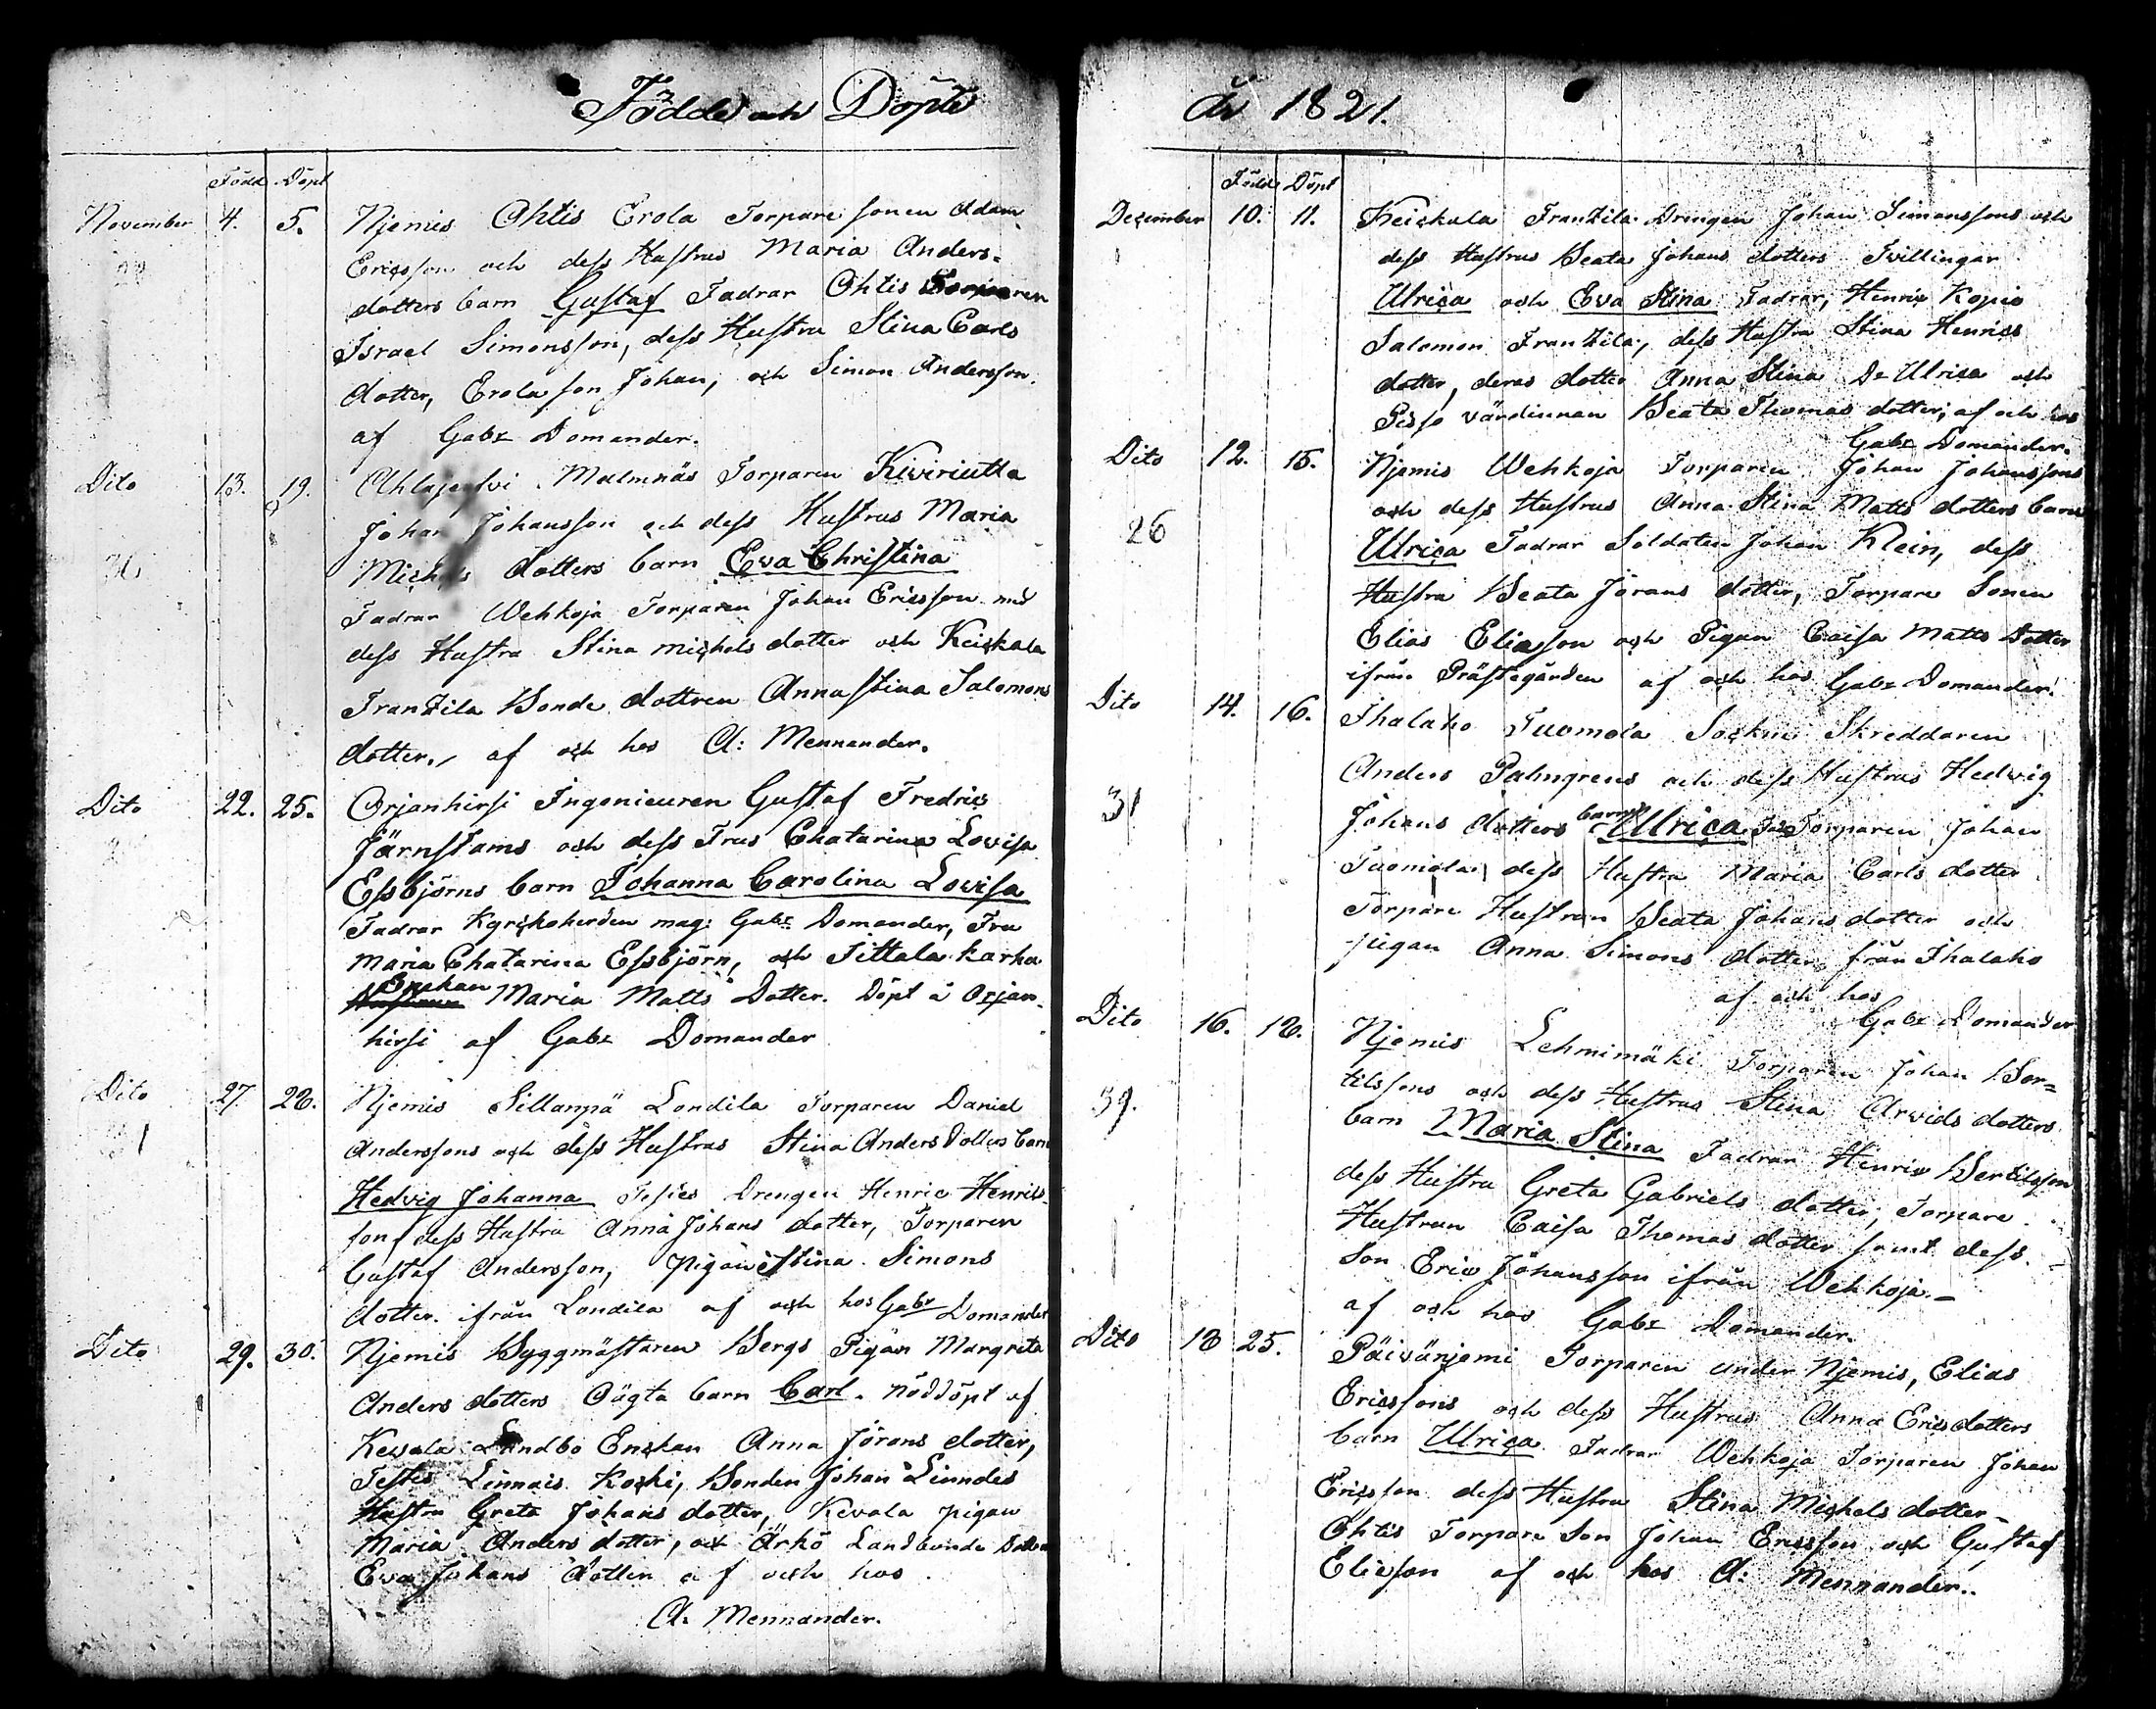 Födde och Döpte
Född Döpt
November 4. 5. Njemis Ohtis Erola Torpare sonen Adam
Ericsson och dess Hustrus Maria Anders=
dotters barn Gustaf Fadrar Ohtis Torparen
Israel Simonsson, dess Hustru Stina Carls
dotter, Erola son Johan, och Simon Andersson.
af Gabr Domander.
Dito 13. 19. Ahlajerfvi Malmnäs Torparen Kiviriutta
Johan Johansson och dess Hustrus Maria
Michels dotters barn Eva Christina
Fadrar Wehkoja Torparen Johan Ericsson med
dess Hustru Stina Michels dotter och Keickala
Frantzila Bonde dottren Anna Stina Salomons
dotter, af och hos A: Mennander.
Dito 22. 25. Orjanhirsi Ingenieuren Gustaf Fredric
Järnstams och dess Frus Chatarina Lovisa
Essbjörns barn Johanna Carolina Lovisa
Fadrar Kyrckoherden mag: Gabr Domander, Fru
Maria Chatarina Essbjörn, och Pittala karha
Enckan Maria Matts Dotter. Döpt å Orjan-
hirsi af Gabr Domander
Dito 27. 28. Njemis Sillanpä Londila Torparen Daniel
Anderssons och dess Hustrus Stina Anders Dotters barn
Hedvig Johanna Testes Drengen Henric Henrics-
son, dess Hustru Anna Johans dotter, Torparen
Gustaf Andersson, pigan Stina Simons
dotter ifrån Londila af och hos Gabr Domander
Dito 29. 30. Njemis Byggmästaren Bergs Pigan Margreta
Anders dotters Oägta barn Carl. nöddöpt af
Kevola Landbo Enckan Anna Jörans dotter,
Testes Linnais Koski, Bonden Johan Linndes
Hustru Greta Johans dotter, Kevola pigan
Maria Anders dotter, och Ärkö Landbonde Dotter
Eva Johans dotter af och hos
A: Mennander.
År 1821.
Född Döpt
December 10. 11. Keickala Frantzila Drengen Johan Simonssons och
dess Hustrus Beata Johans dotters Tvillingar
Ulrica och Eva Stina Fadrar, Henric Kopio
Salomon Frantzila, dess Hustru Stina Henrics
dotter, deras dotter Anna Stina De Ulrica och
värdinnan Beata Thomas dotter; af och hos
Gabr Domander.
Dito 12. 15. Njemis Wehkoja Torparen Johan Johanssons
26 och dess Hustrus Anna Stina Matts dotters barn
Ulrica Fadrar Soldaten Johan Klein, dess
Hustru Beata Jörans dotter, Torpare Sonen
Elias Eliasson och Pigan Caisa Matts Dotter
ifrån Prästegården af och hos Gabr Domander.
Dito 14. 16. Ihalaho Tuomola Sockne Skreddaren
Anders Palmgrens och dess Hustrus Hedvig
31 Johans dotters barn Ulrica Torparen Johan
Tuomola, dess Hustru Maria Carls dotter
Torpare Hustrun Beata Johans dotter och
pigan Anna Simons dotter från Ihalaho
af och hos
Gabr Domander
Dito 16. 18. Njemis Lehmimäki Torparen Johan Ber=
39. tilssons och dess Hustrus Stina Arvids dotters
barn Maria Stina Fadrar Henric Bertilsson
dess Hustru Greta Gabriels dotter, Torpare
Hustrun Caisa Thomas dotter samt dess
Son Eric Johansson ifrån Wehkoja.
af och hos Gabr Domander.
Dito 18 25. Päivänjemi Torparen under Njemis, Elias
Ericssons och dess Hustrus Anna Erics dotters
barn Ulrica Fadrar Wehkoja Torparen Johan
Ericsson dess Hustru Stina Michels dotter
Ohtis Torpare Son Johan Ericsson och Gustaf
Eliasson af och hos A: Mennander.